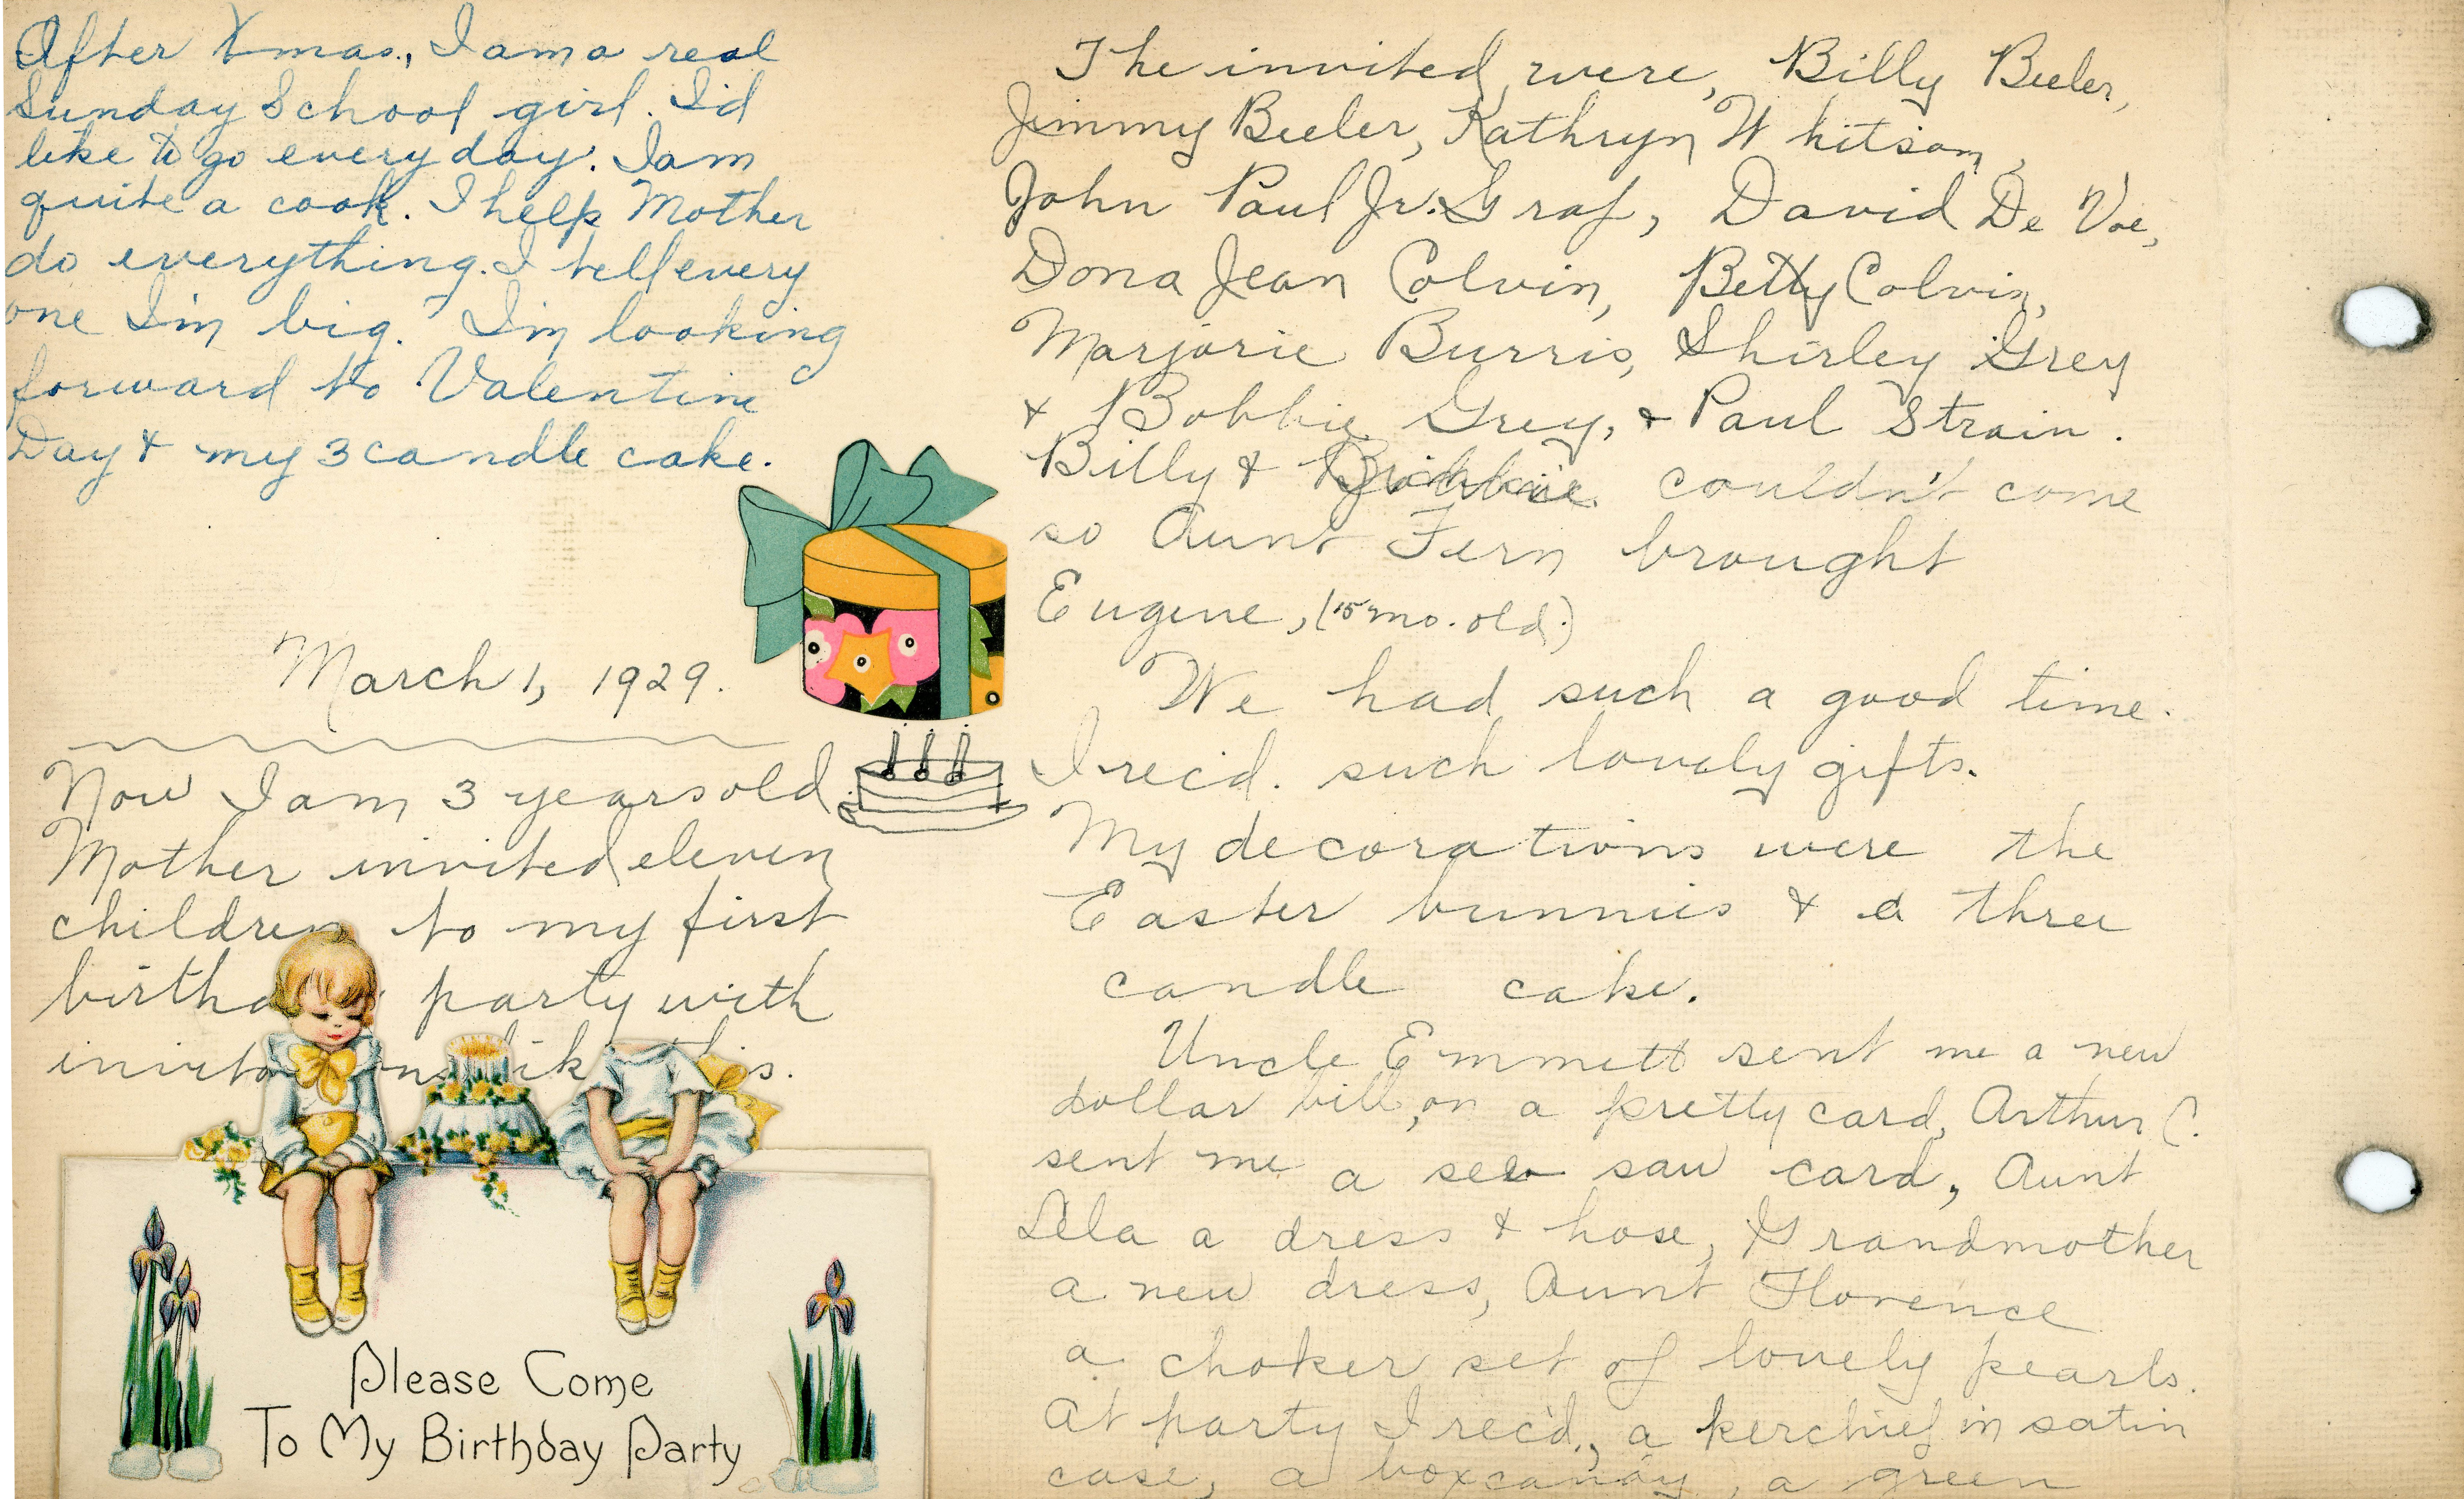 After Xmas., I am a real
Sunday School girl. I'd
like to go every day. I am
quite a cook. I help Mother
do everything. I tell every
one I'm big. I'm looking
forward to Valentine
Day & my 3 candle cake.
March 1, 1929.
Now I am 3 years old.
Mother invited eleven
children to my first
birthday party with
like this.
Please Come
To My Birthday Party
The invited were, Billy Beeler,
Jimmy Beeler, Kathryn Whitsom,
John Paul Jr. Graf, David De Voe,
Dona Jean Colvin, Betty Colvin,
Marjorie Burris, Shirley Grey
& Bobbie Grey, & Paul Strain.
Billy & couldn't come
so Aunt Fern brought
Eugene, (15 mo. old.)
We had such a good time.
I rec'd. such lovely gifts.
My decorations were the
Easter bunnies & a three
candle cake.
Uncle Emmett sent me a new
dollar bill, on a pretty card, Arthur C.
sent me a see saw card, Aunt
Lela a dress & hose, Grandmother
a new dress, Aunt Florence
a choker set of lovely pearls.
At party I rec'd., a kerchief in satin
case, a box candy, a green